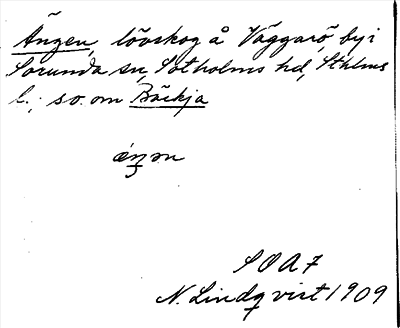 Ängen, lövskog å Väggarö, by i
Sorunda sn, Sotholms hd, Sthlms
l.; s.o. om Bäckja
æŋən
SOA7
N. Lindqvist 1909